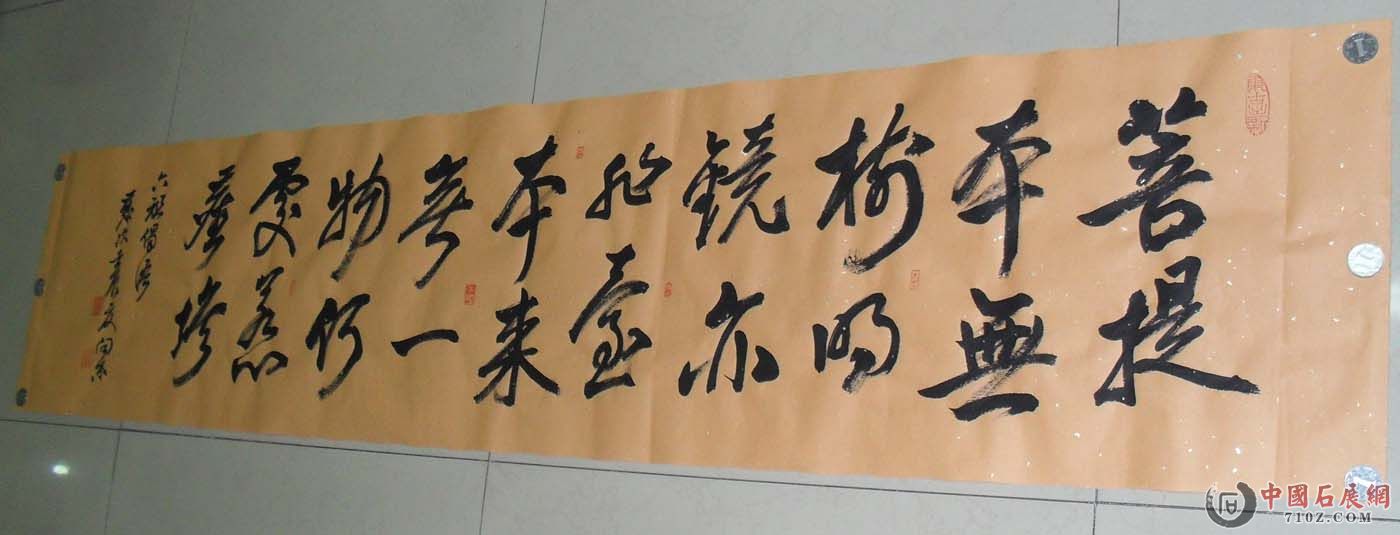 菩提
本無
樹明
鏡亦
非臺
本来
無一
物何
處惹
塵埃
六祖偈語
中國石展網
710Z.COM